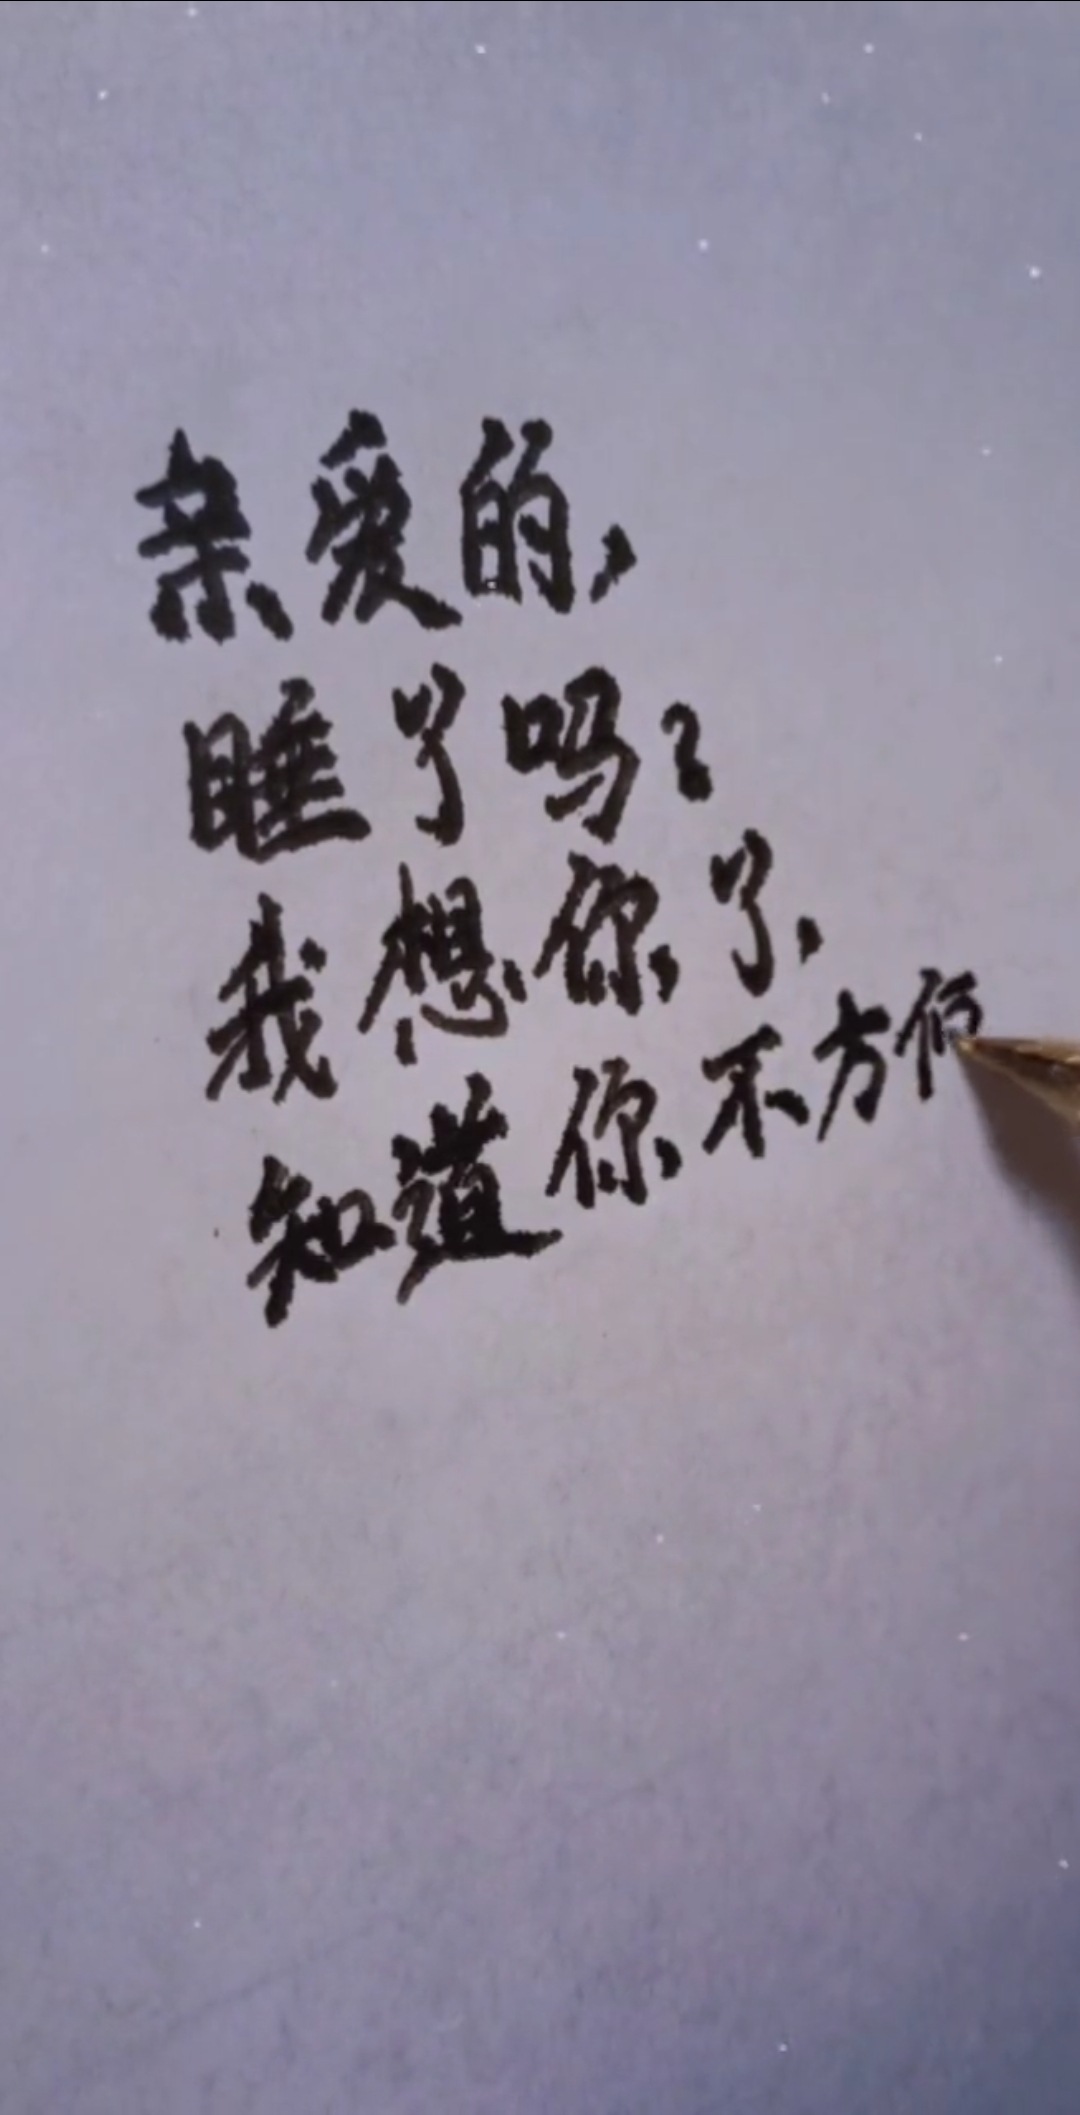 亲爱的，
睡了吗？
我想你了，
知道你不方